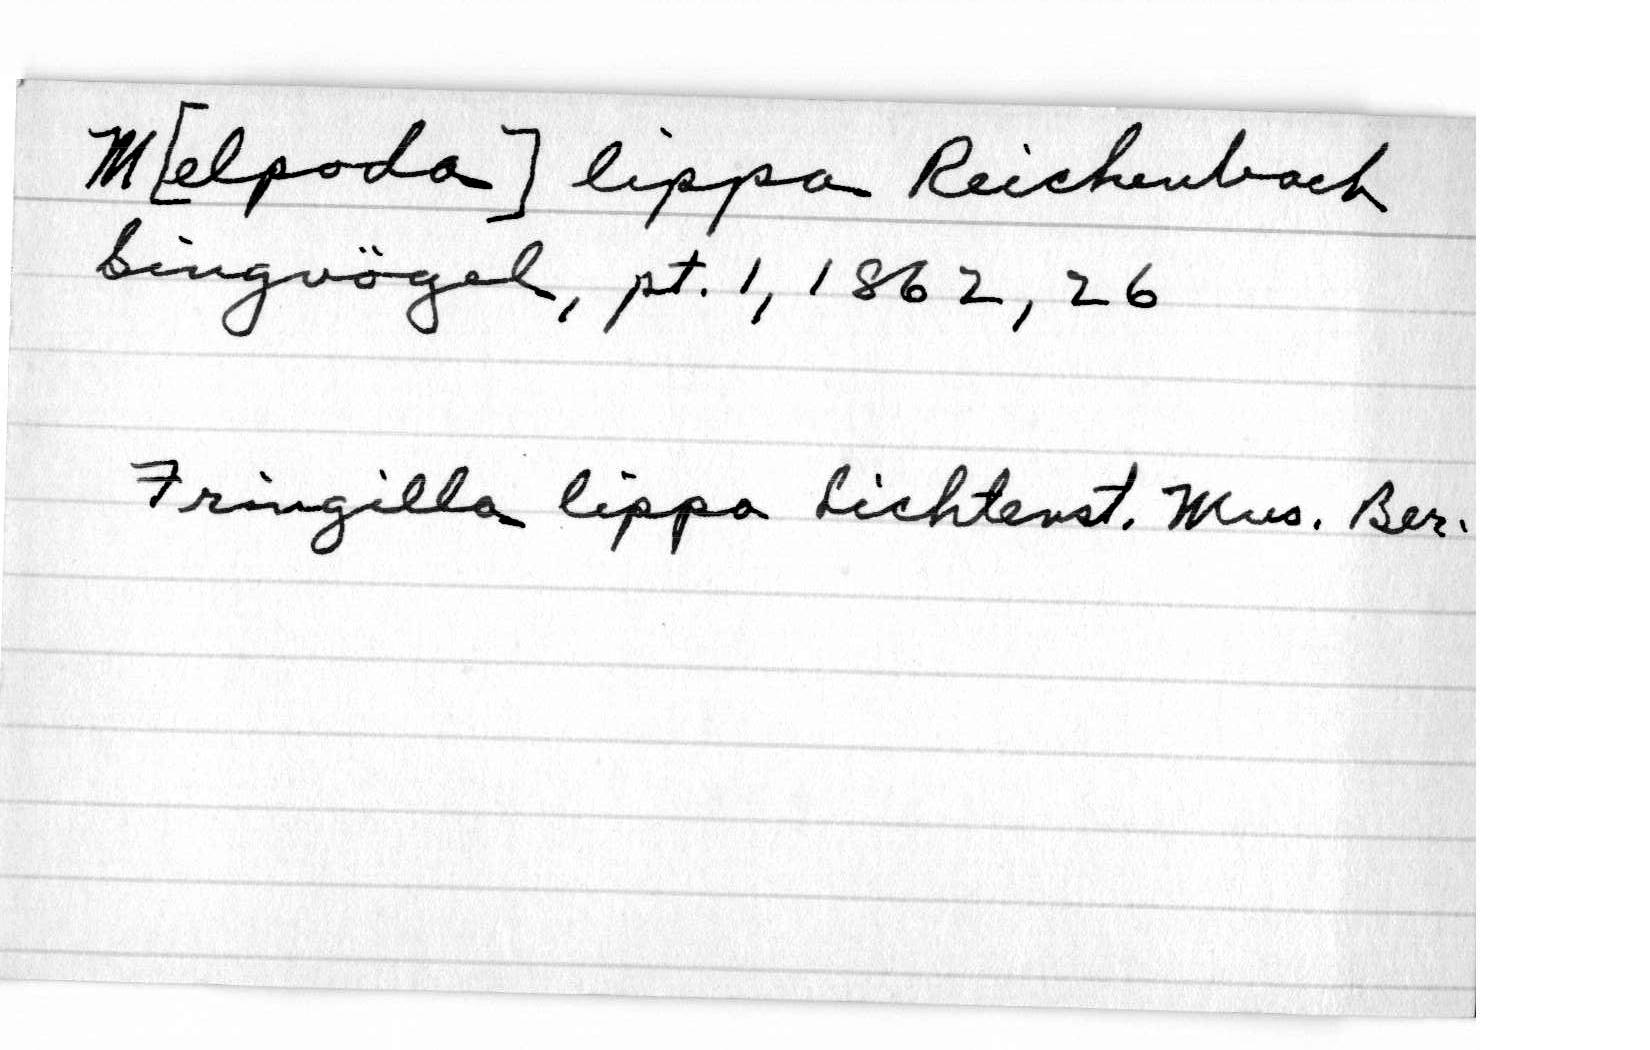 M[elpoda] lippa Reichenbach
Singvögel, pt. 1, 1862, 26
Fringilla lippa Lichtenst. Mus. Ber.